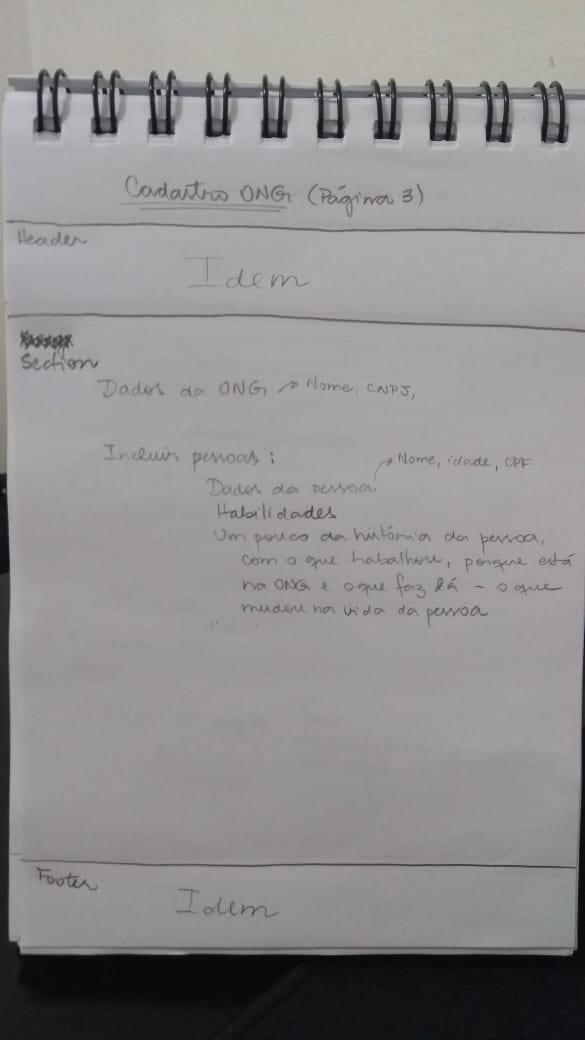 Cadastro ONG (Página 3)
Header
Idem
Section
Dados da ONG → Nome, CNPJ,
Incluir pessoas :
→ Nome, idade, CPF
Dados da pessoa
Habilidades
Um pouco da história da pessoa,
com o que trabalhou, porque está
na ONG e o que faz lá - o que
mudou na vida da pessoa
Footer
Idem